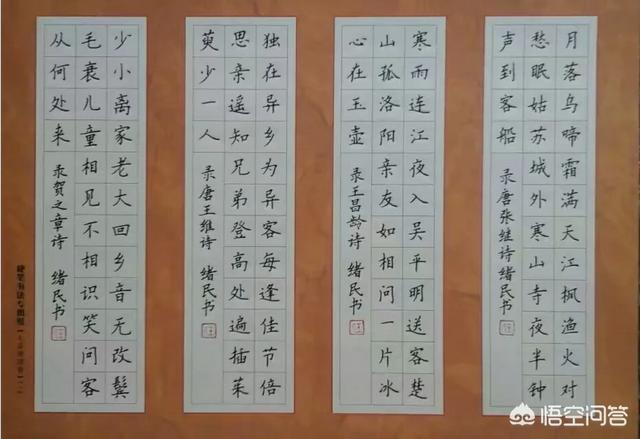 月落乌啼霜满天江枫渔火对
愁眠姑苏城外寒山寺夜半钟
声到客船 录唐张继诗绪民书
寒雨连江夜入吴平明送客楚
山孤洛阳亲友如相问一片冰
心在玉壶 录王昌龄诗 绪民书
独在异乡为异客每逢佳节倍
思亲遥知兄弟登高处遍插茱
萸少一人 录唐王维诗 绪民书
少小离家老大回乡音无改鬓
毛衰儿童相见不相识笑问客
从何处来 录贺之章诗 绪民书
硬笔书法专用纸
悟空问答